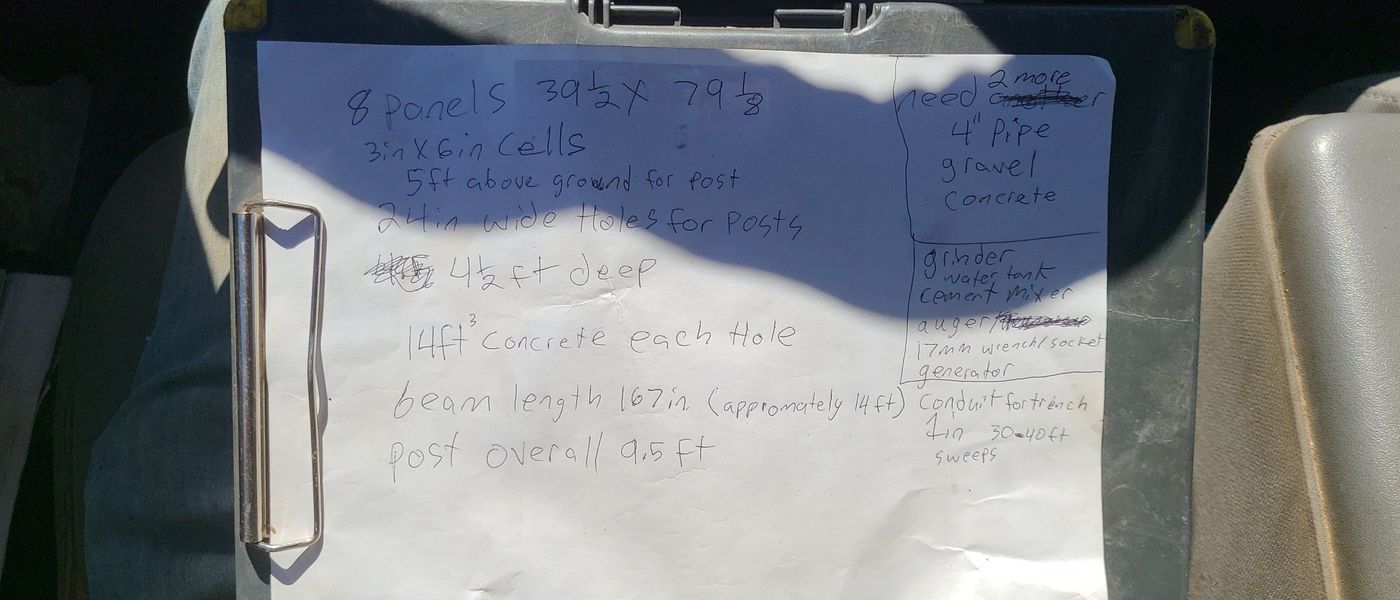 8 panels 39 1/2 X 79 1/8
3in X 6in cells
5ft above ground for post
24in wide Holes for posts
4 1/2 ft deep
14ft³ concrete each Hole
beam length 167in (appromately 14ft)
post overall 9.5 ft
need 2 more
4" pipe
gravel
concrete
grinder
water tank
cement mixer
auger/
17mm wrench/socket
generator
conduit for trench
1in 30-40ft
sweeps